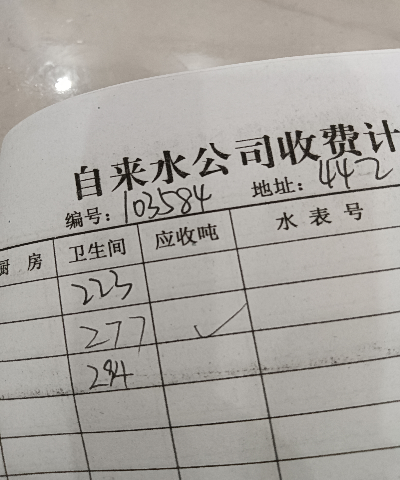 自来水公司收费计
编号: 103584 地址: 442
厨房 卫生间 应收吨 水表号
223
277 ✓
284